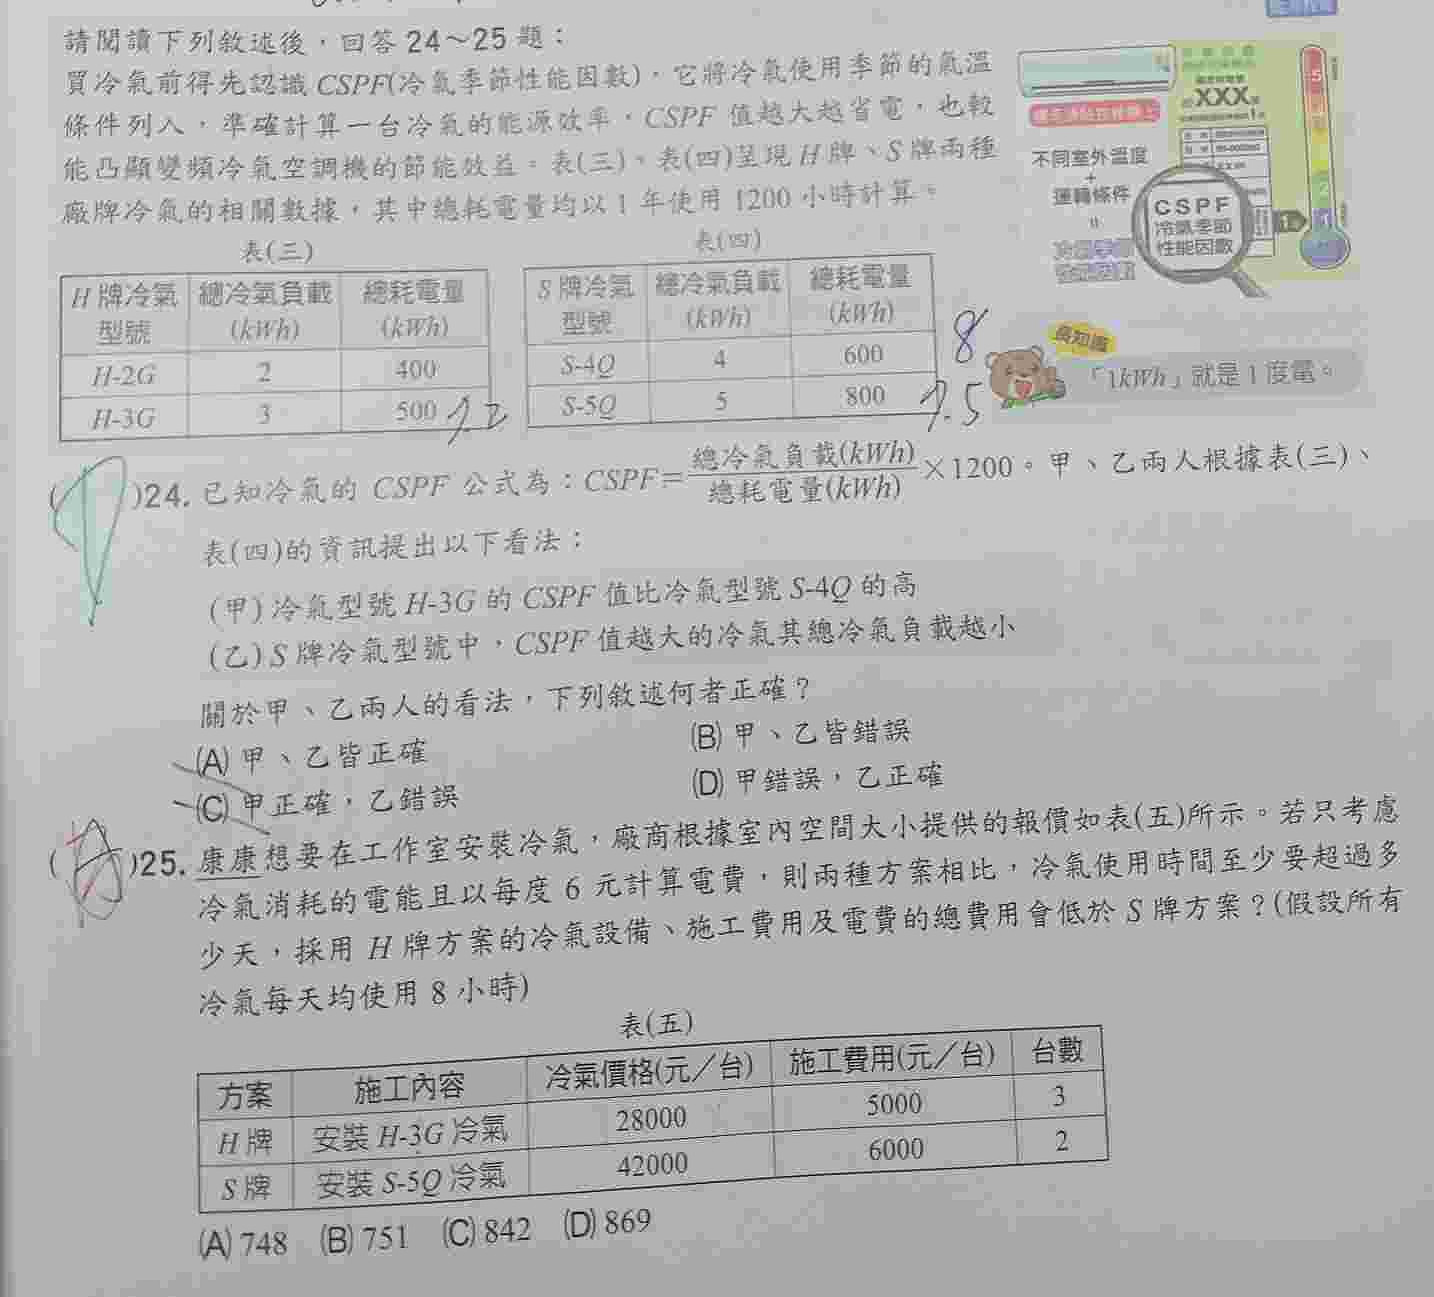 請閱讀下列敘述後，回答 24～25 題：
買冷氣前得先認識 CSPF(冷氣季節性能因數)，它將冷氣使用季節的氣溫
條件列入，準確計算一台冷氣的能源效率，CSPF 值越大越省電，也較
能凸顯變頻冷氣空調機的節能效益。表(三)、表(四)呈現 H 牌、S 牌兩種
廠牌冷氣的相關數據，其中總耗電量均以 1 年使用 1200 小時計算。
XXX
不同室外溫度
+
運轉條件
=
CSPF
冷氣季節
性能因數
表(三)
H 牌冷氣型號 總冷氣負載(kWh) 總耗電量(kWh)
H-2G 2 400
H-3G 3 500 7.2
表(四)
S 牌冷氣型號 總冷氣負載(kWh) 總耗電量(kWh)
S-4Q 4 600 8
S-5Q 5 800 7.5
長知識
「1kWh」就是 1 度電。
( )24. 已知冷氣的 CSPF 公式為：CSPF=總冷氣負載(kWh)/總耗電量(kWh)×1200。甲、乙兩人根據表(三)、
表(四)的資訊提出以下看法：
(甲) 冷氣型號 H-3G 的 CSPF 值比冷氣型號 S-4Q 的高
(乙) S 牌冷氣型號中，CSPF 值越大的冷氣其總冷氣負載越小
關於甲、乙兩人的看法，下列敘述何者正確？
(A) 甲、乙皆正確 (B) 甲、乙皆錯誤
(C) 甲正確，乙錯誤 (D) 甲錯誤，乙正確
( )25. 康康想要在工作室安裝冷氣，廠商根據室內空間大小提供的報價如表(五)所示。若只考慮
冷氣消耗的電能且以每度 6 元計算電費，則兩種方案相比，冷氣使用時間至少要超過多
少天，採用 H 牌方案的冷氣設備、施工費用及電費的總費用會低於 S 牌方案？(假設所有
冷氣每天均使用 8 小時)
表(五)
方案 施工內容 冷氣價格(元／台) 施工費用(元／台) 台數
H 牌 安裝 H-3G 冷氣 28000 5000 3
S 牌 安裝 S-5Q 冷氣 42000 6000 2
(A) 748 (B) 751 (C) 842 (D) 869